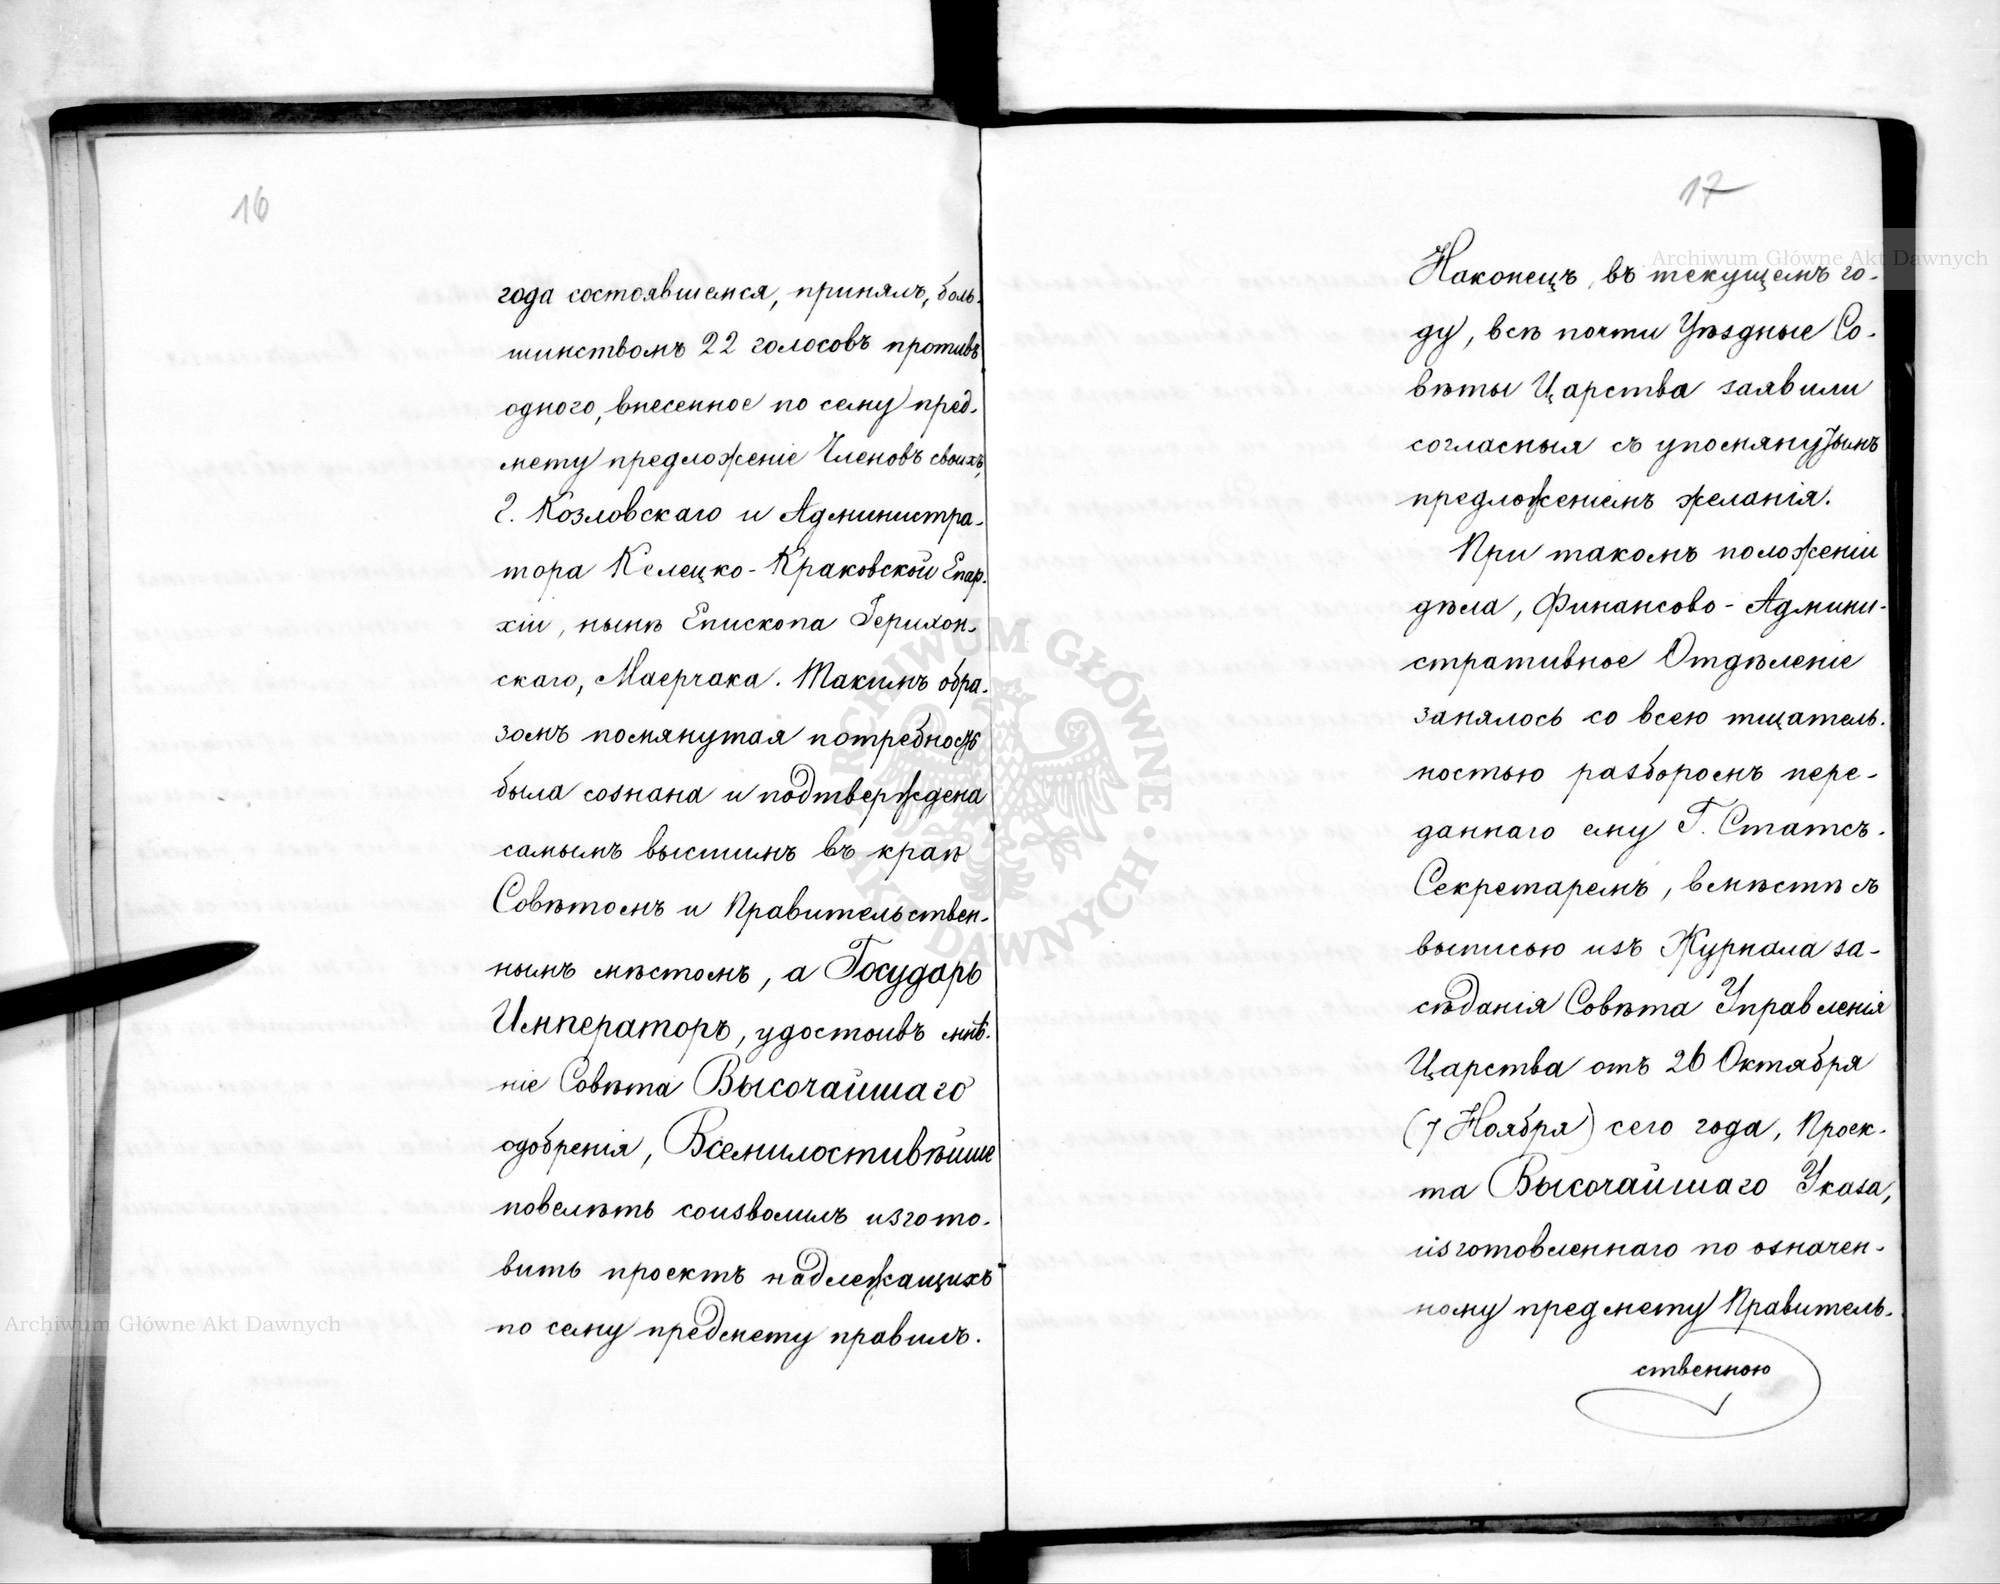 16
года состоявшемся, принялъ, боль-
шинствомъ 22 голосовъ противъ
одного, внесенное по сему пред-
мету предложеніе Членовъ своихъ,
Г. Козловскаго и Администра-
тора Келецко-Краковской Епар-
хіи, нынѣ Епископа Іерихон-
скаго, Маерчака. Такимъ обра-
зомъ помянутая потребность
была сознана и подтверждена
самымъ высшимъ въ краѣ
Совѣтомъ и Правительствен-
нымъ мѣстомъ, а Государь
Императоръ, удостоивъ мнѣ-
ніе Совѣта Высочайшаго
одобренія, Всемилостивѣйше
повелѣть соизволилъ изгото-
вить проектъ надлежащихъ
по сему предмету правилъ.
17
Наконецъ, въ текущемъ го-
ду, всѣ почти Уѣздные Со-
вѣты Царства заявили
согласныя съ упомянутымъ
предложеніемъ желанія.
При такомъ положеніи
дѣла, Финансово-Админи-
стративное Отдѣленіе
занялось со всею тщатель-
ностью разборомъ пере-
даннаго ему Г. Статсъ-
Секретаремъ, вмѣстѣ съ
выписью изъ Журнала за-
сѣданія Совѣта Управленія
Царства отъ 26 Октября
(7 Ноября) сего года, Проек-
та Высочайшаго Указа,
изготовленнаго по означен-
ному предмету Правитель-
ственною
Archiwum Główne Akt Dawnych
Archiwum Główne Akt Dawnych
ARCHIWUM GŁÓWNE AKT DAWNYCH